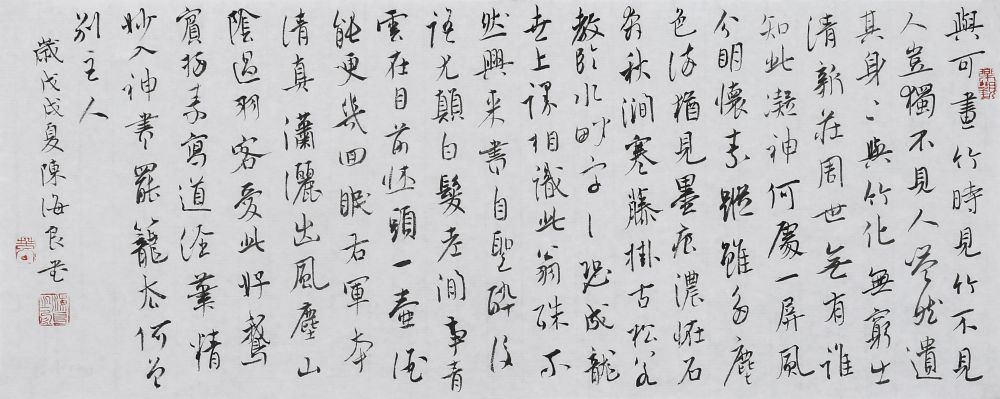 與可畫竹時見竹不見
人豈獨不見人嗒然遺
其身〻與竹化無窮出
清新莊周世無有誰
知此凝神何處一屏風
分明懷素蹤雖多塵
色染猶見墨痕濃怪石
奔秋澗寒藤掛古松若
教臨水畔字〻恐成龍
世上謾相識此翁殊不
然興來書自聖醉後
語尤顛白髮老閒事青
雲在目前牀頭一壺酒
能更幾回眠右軍本
清真瀟灑出風塵山
陰過羽客愛此好鵝
賓掃素寫道經筆精
妙入神書罷籠去何曾
別主人
歲戊戌夏陳海良書